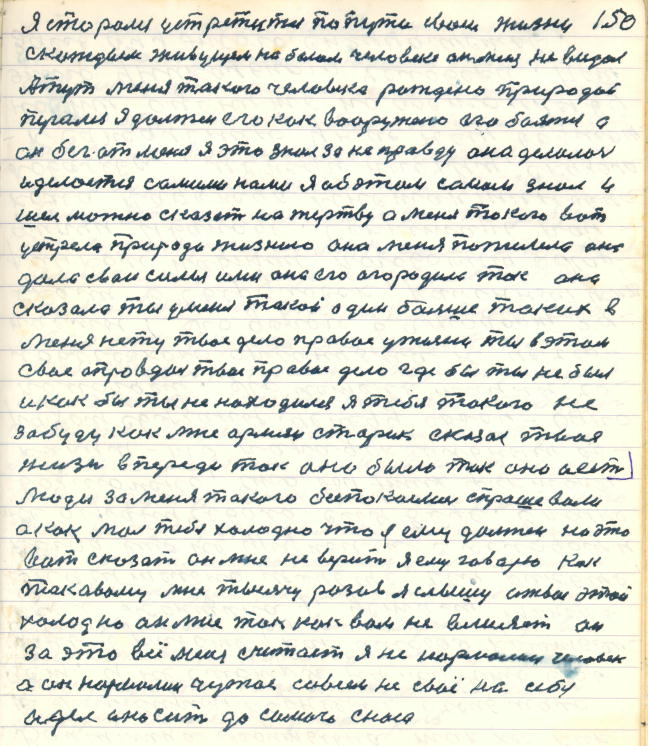 Я старался устретится по пути своей жизни 150
с каждым живущем на белом человеке он меня не видал
А тут меня такого человека рождено природой
пугался я должен его как вооружено его боятся а
он бег от меня я это знал за не правду она делалась
и делается самими нами я об этом самом знал и
шел можно сказат на жертву а меня такого вот
устрела природа жизнию она меня пожалела она
дала свои силы ими она его огородила так она
сказала ты у меня такой один больше таких в
меня нету твое дело правое умоями ты в этом
свое оправдай твое правое дело где бы ты не был
и как бы ты не находился я тебя такого не
забуду как мне армян старик сказал твоя
жизн впереди так оно было так оно и ест
Люди за меня такого беспокоелися спрашевали
а как мол тебе холодно что я ему должен на это
вот сказат он мне не верит я ему говарю как
таковому мне тысячу разов я слышу от вас этой
холодно он мне так как вам не влияет он
за это всё меня считает я не нормалин человек
а он нормалин чужое совсем не своё на себу
одел и носит до самого сноса